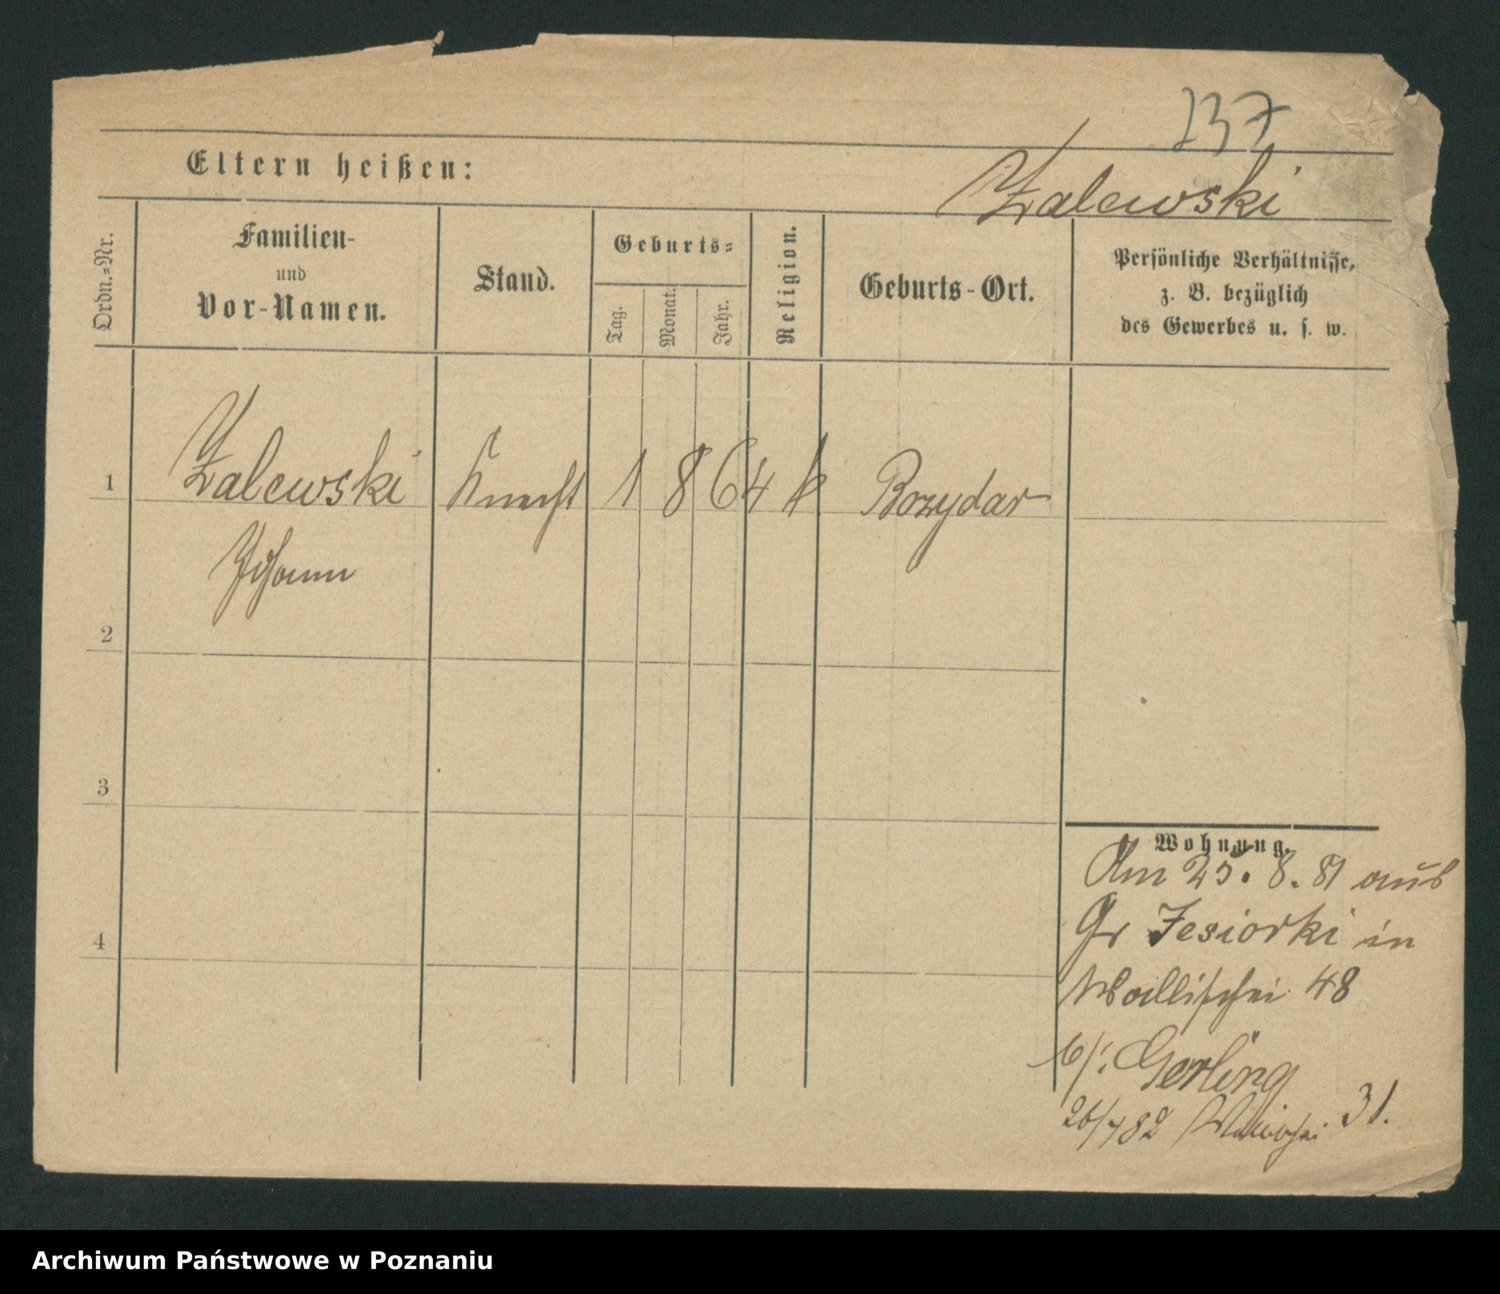 237
Eltern heißen:
Zalewski
Ordn.=Nr.
Familien-
und
Vor-Namen.
Stand.
Geburts=
Tag.
Monat.
Jahr.
Religion.
Geburts-Ort.
Persönliche Verhältnisse,
z. B. bezüglich
des Gewerbes u. s. w.
1
Zalewski Knecht 1864 k Bozydar
Johann
2
3
4
Wohnung.
Am 25. 8. 81 aus
Gr Jesiorki in
Wallischei 48
b/: Gerling
26/7 82 31.
Archiwum Państwowe w Poznaniu